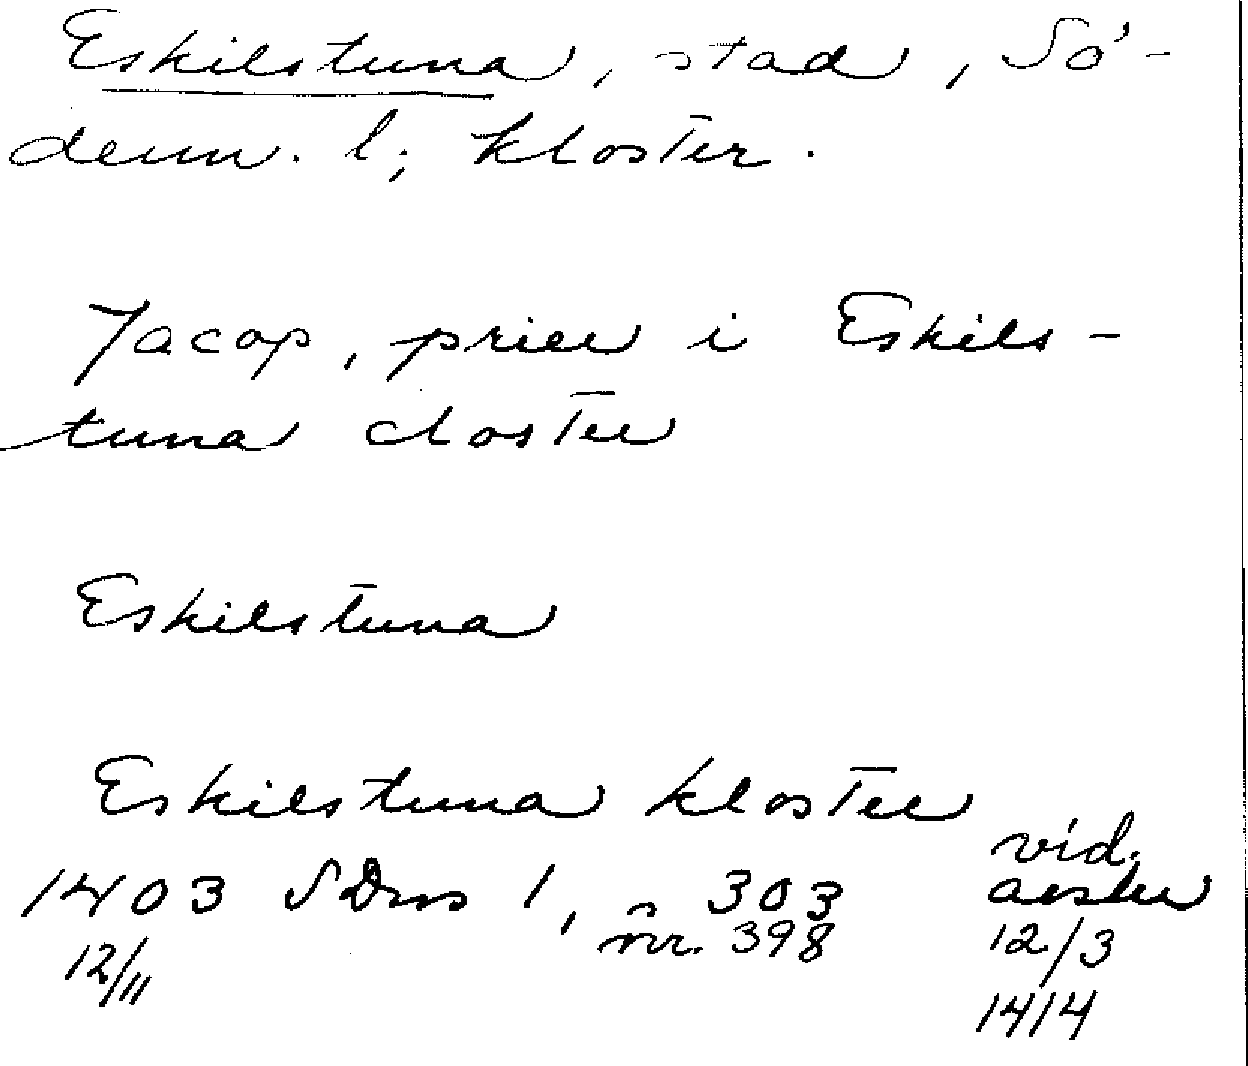 Eskilstuna, stad, Sö-
derm. l; kloster.
Jacop, prier i Eskils-
tuna closter
Eskilstuna
Eskilstuna kloster
vid.
1403 SDns 1, s 303
12/11 nr. 398 12/3
1414